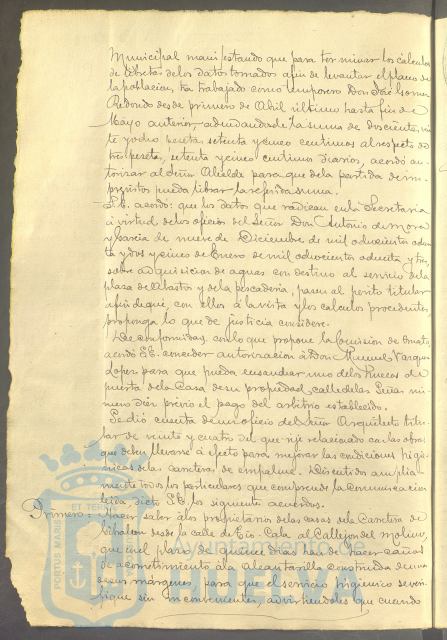 Municipal manifestando que para terminar los cálculos
de libretas de los datos tomados afin de levantar el plano de
la poblacion, ha trabajado como temporero Don José Gomez
Redondo desde primero de Abril último hasta fin de
Mayo anterior, adeudandosele la suma de doscientas, vein
te y ocho pesetas, setenta y cinco centimos al respecto de
tres pesetas, setenta y cinco centimos diarios, acordó au
torizar al Señor Alcalde para que de la partida de im
previstos pueda librar la referida suma.
S.E. acordó: que los datos que radican en la Secretaria
á virtud de los oficios del Señor Don Antonio de Mora
y Garcia de nueve de Diciembre de mil ochocientos ochen
ta y dos y cinco de Enero de mil ochocientos ochenta y tres,
sobre adquisicion de aguas con destino al servicio de la
plaza de Abastos y de la pescaderia, pasen al perito titular
afin de que, con ellos á la vista y los calculos procedentes,
proponga lo que de justicia considere.
De conformidad con lo que propone la Comision de Ornato,
acordó S.E. conceder autorizacion á Don Manuel Vargas
Lopez para que pueda ensanchar uno de los huecos de
puerta de la Casa de su propiedad, calle de las Peñas nú
mero diez previo el pago del arbitrio establecido.
Se dió cuenta de un oficio del Señor Arquitecto titu
lar de veinte y cuatro del que rije relacionado con las obras
que deben llevarse á efecto para mejorar las condiciones higié
nicas de las carreteras de empalme. Discutidos amplia
mente todos los particulares que comprende la comunicacion
leida dictó S.E. los siguientes acuerdos.
Primero: Hacer saber á los propietarios de las casas de la Carretera de
desde la calle de Cala al Callejon del molino,
que en el plazo de quince dias han de hacer cañerias
de acometimiento á la alcantarilla construida en una
de sus márgenes, para que el servicio higienico se veri
fique sin inconvenientes, advirtiendoles que cuando
PORTUS MARIS ET TERRA
Ayuntamiento de
HUELVA